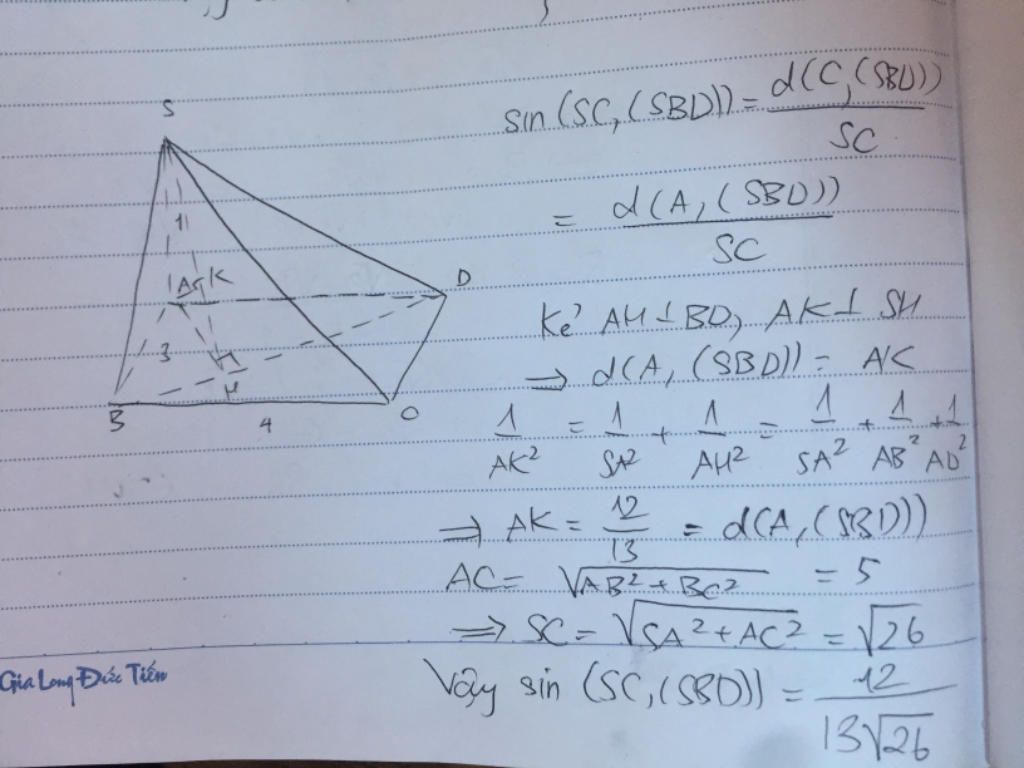 sin(SC, (SBD)) = d(C, (SBD)) / SC
= d(A, (SBD)) / SC
Kẻ AH ⊥ BD, AK ⊥ SH
⇒ d(A, (SBD)) = AK
1/AK² = 1/SA² + 1/AH² = 1/SA² + 1/AB² + 1/AD²
⇒ AK = 12/13 = d(A, (SBD))
AC = √(AB² + BC²) = 5
⇒ SC = √(SA² + AC²) = √26
Vậy sin (SC, (SBD)) = 12 / 13√26
S
1
A K
D
3
H
B
4
C
Gia Long Đức Tiến